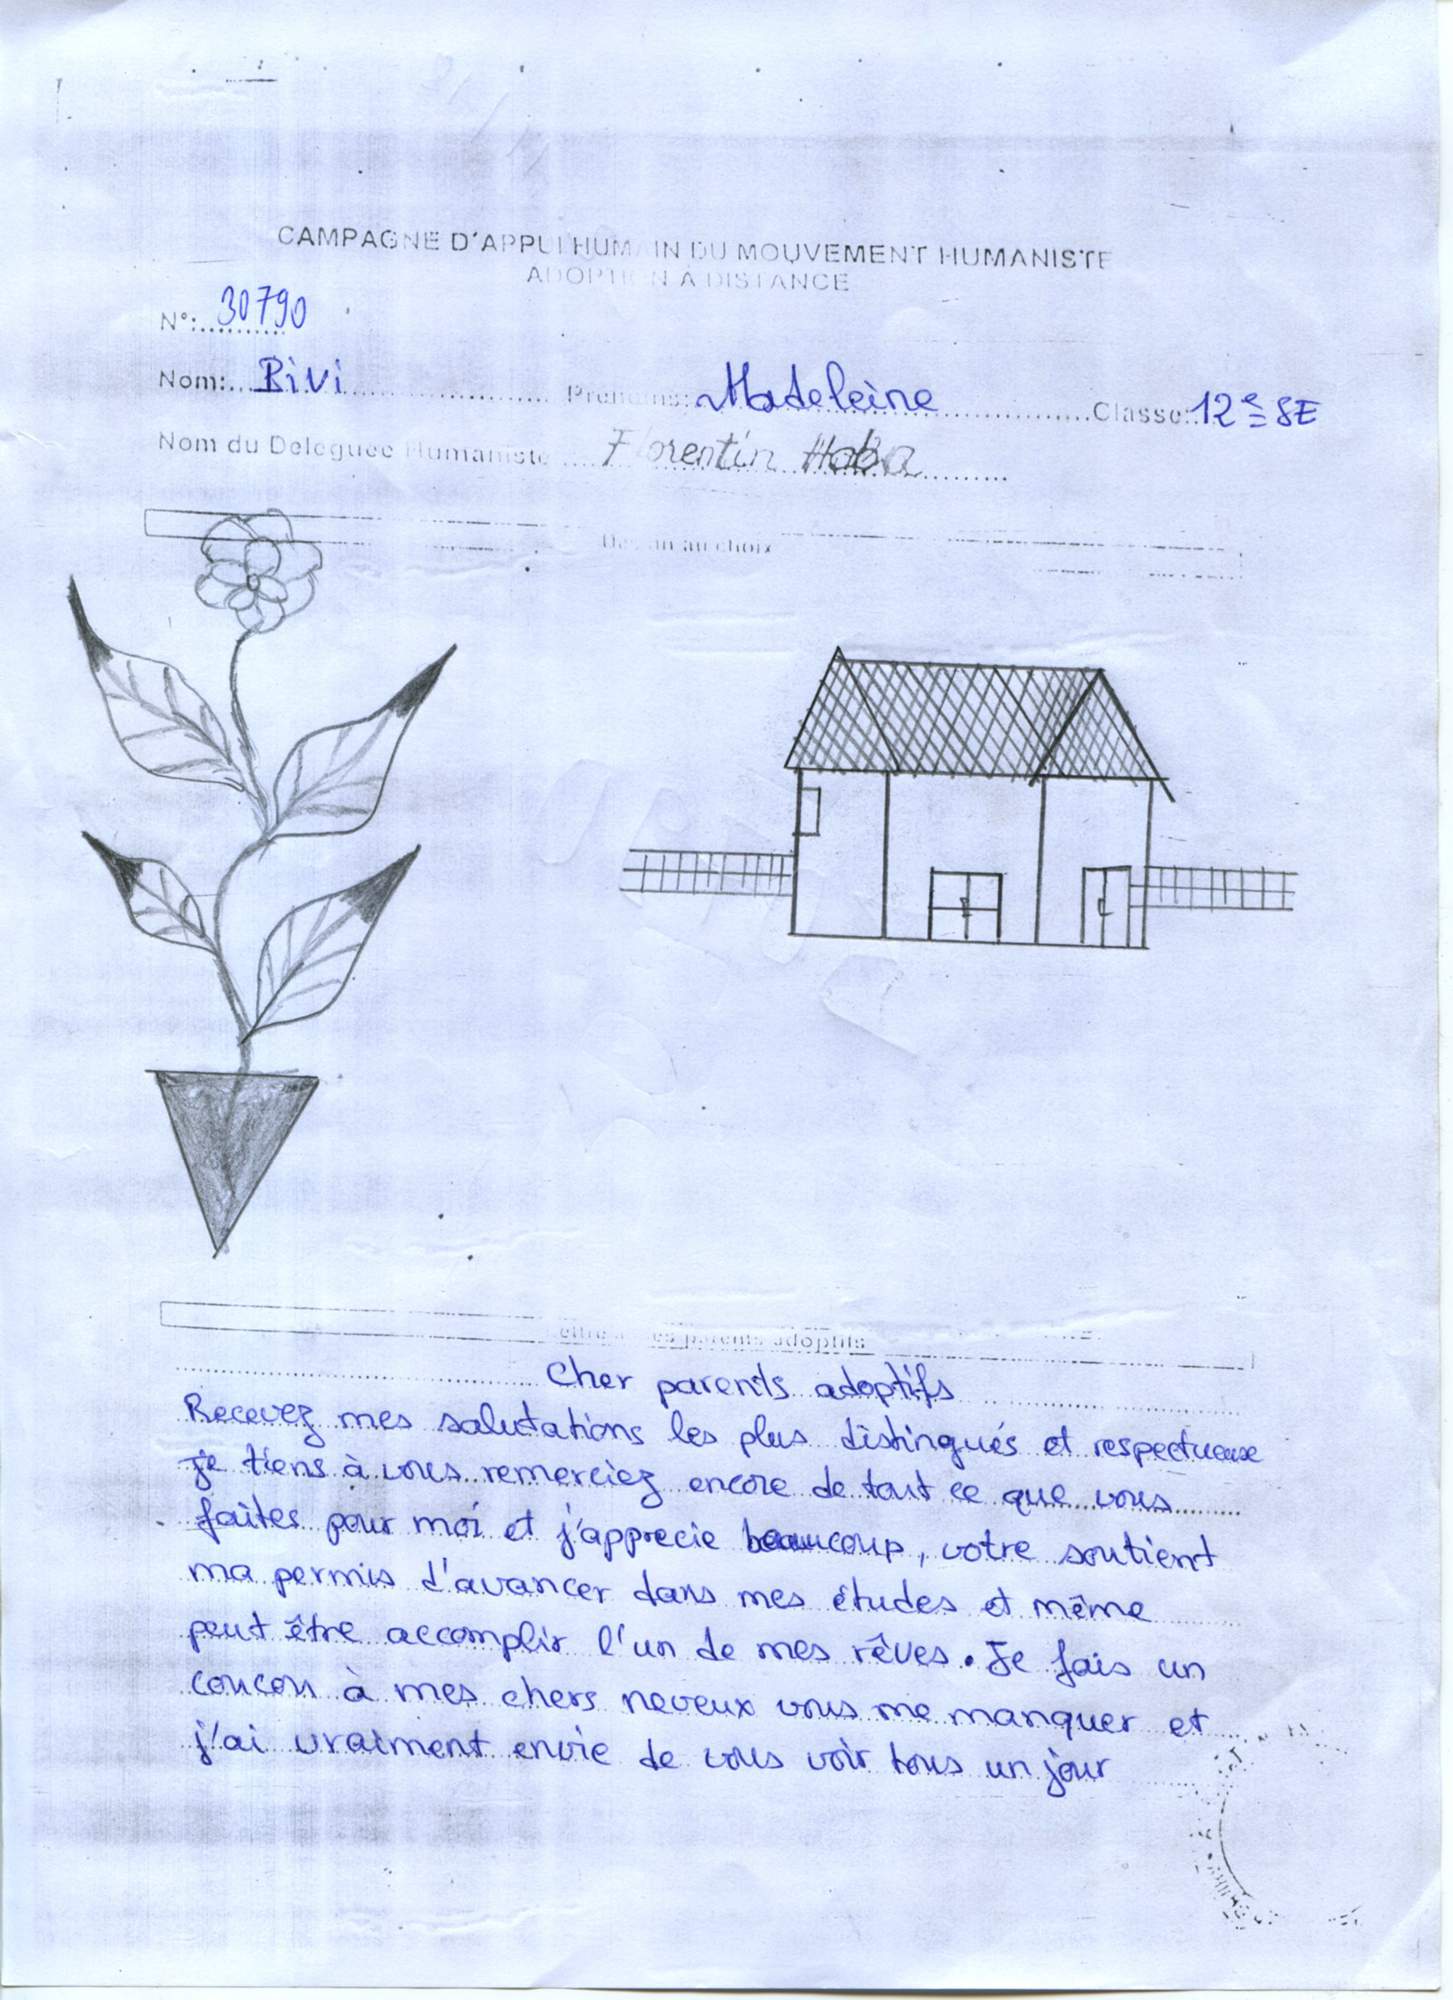 CAMPAGNE D'APPUI HUMAIN DU MOUVEMENT HUMANISTE
ADOPTION À DISTANCE
N°: 30790
Nom: Bivi Prenoms: Madeleine Classe: 12e SE
Nom du Deleguee Humaniste Florentin Haba
Dessin au choix
Lettre à mes parents adoptifs
Cher parents adoptifs
Recevez mes salutations les plus distingués et respectueuse
je tiens à vous remerciez encore de tout ce que vous
faites pour moi et j'apprecie beaucoup, votre soutient
ma permis d'avancer dans mes études et même
peut être accomplir l'un de mes rêves. Je fais un
coucou à mes chers neveux vous me manquer et
j'ai vraiment envie de vous voir tous un jour